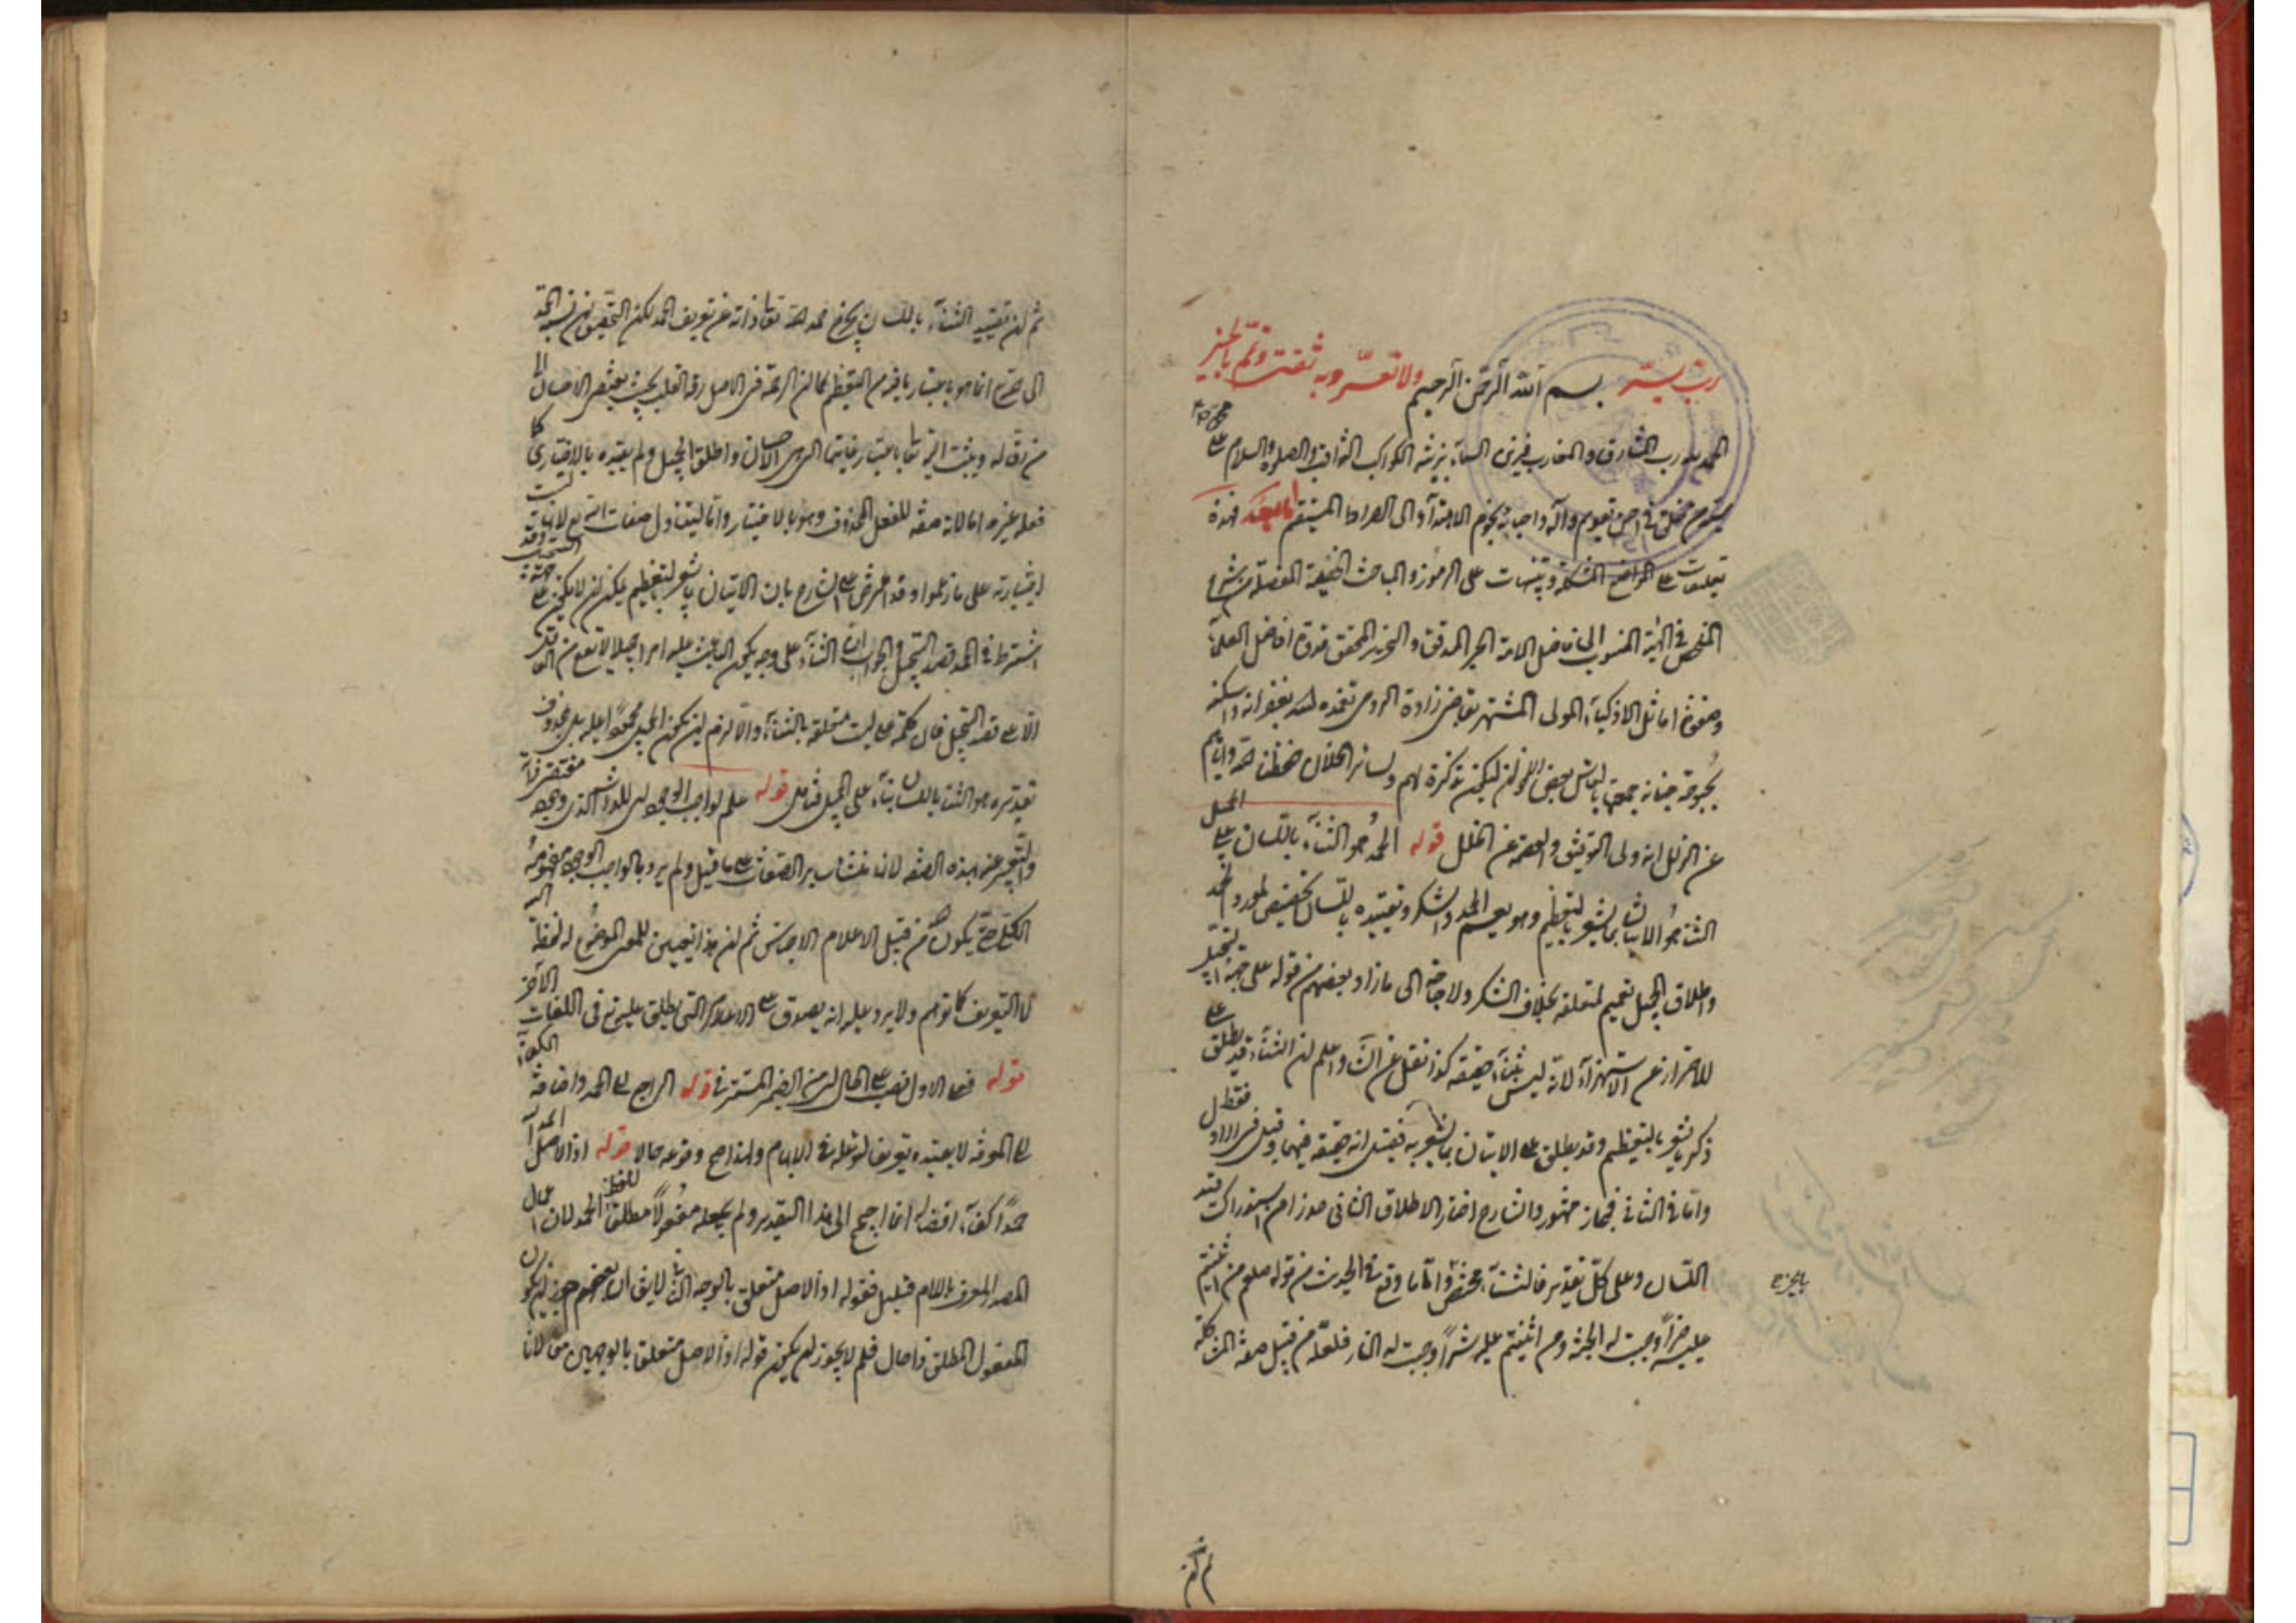 رب يسّر بسم الله الرحمن الرحيم ولا تعسّر وبه ثقتى وتمّم بالخير
الحمد لله رب المشارق والمغارب فزين السماء بزينة الكواكب الثواقب والصلوة والسلام على محمد
تقويم وآله واصحابه نجوم الاهتداء الى الصراط المستقيم اما بعد فهذه
تعليقات على المواضع المشكلة وتنبيهات على الرموز والمباحث الخفية المفصلة من شرح
الملخص فى الهيئة المنسوب الى فاضل الامة الحبر المدقق والنحرير المحقق قدوة افاضل العلماء
وصفوة اماثل الاذكياء المولى المشتهر بقاضى زادة الرومى تغمده الله بغفرانه واسكنه
بحبوحة جنانه جمعتها بالتماس بعض ليكون تذكرة لهم ولسائر الخلان حفظنا الله واياهم
عن الزلل انه ولى التوفيق والعصمة عن الخلل قوله الحمد هو الثناء باللسان على الجميل
الثناء هو الاتيان بما يشعر بالتعظيم وهو يعم الحمد والشكر وتقييده باللسان تخصيص للمورد
واطلاق الجميل تعميم لمتعلقه بخلاف الشكر ولا حاجة الى ما زاد بعضهم من قوله على جهة التبجيل
للاحتراز عن الاستهزاء لانه ليس بثناء حقيقة كذا نقل عن واعلم ان الثناء قد يطلق على
ذكر يشعر بالتعظيم وقد يطلق على الاتيان بما يشعر به فقيل انه حقيقة فيهما وقيل فى الاول فقط
واما فى الثانى فمجاز مشهور والشارح اختار الاطلاق الثانى حذرا من استدراك قيد
اللسان وعلى كل تقدير فالثناء مختص واما ما وقع فى الحديث من قوله صلعم من اثنيتم
بالخير
عليه خيرا وجبت له الجنة ومن اثنيتم عليه شرا وجبت له النار فلعله من قبيل صنعة المشاكلة
ثم ان
ثم ان تقييد الثناء باللسان يخرج حمد الله تعالى ذاته عن تعريف الحمد لكن التحقيق ان نسبة الحمد
الى الله تعالى انما هو باعتبار التعظيم كما ان الرحمة فى الاصل رقة القلب بحيث يقتضى الاحسان الى
من رق له ويثبت له تعالى باعتبار غايتها التى هى الاحسان واطلق الجميل ولم يقيده بالاختيارى كما
فعله غيره اما لانه صفة للفعل المحذوف وهو بالاختيار واما ليتناول صفات الله تع لانها ليست
اختيارية على ما زعموا وقد اعترض على الشارح بان الاتيان بما يشعر بالتعظيم يمكن ان لا يكون على
اشترط فى الحمد قصد التبجيل والجواب ان الثناء على وجه يكون الباعث عليه امرا جميلا لا يقع من
الا على قصد التبجيل فان كلمة على ليست متعلقة بالثناء والا لزم ان يكون الجميل محمودا عليه بل محذوف
تقديره هو الثناء باللسان بناء على الجميل فتأمل قوله علم لواجب الوجود
والتعبير عنه بهذه الصفة لانه منشأ سائر الصفات على ما قيل ولم يرد بالواجب الوجود مفهومه
الكلى حتى يكون من قبيل الاعلام الاجناس ثم ان هذا تعيين للمعنى الموضوع له لفظة الله
لا التعريف كما توهم ولا يرد عليه انه يصدق على الاعلام التى يطلق عليه تع فى اللغات الآخر
قوله فعلى الاول نصب على الحال من الضمير المستتر فى قوله الراجع الى الحمد واضافة
الى المعرفة لا يفيده تعريفا لتوغله فى الابهام ولهذا صح وقوعه حالا قوله اذ الاصل
حمدا كفاء افضاله انما احتيج الى هذا التقدير ولم يجعله مفعولا مطلقا للفظ الحمد لان اعمال
المصدر المعرف باللام قليل فقوله اذ الاصل متعلق بالوجه الثانى لا يقال بعضهم جوز ان يكون
المفعول المطلق حالا فلم لا يجوز ان يكون قوله اذ الاصل متعلقا بالوجهين معا لانا